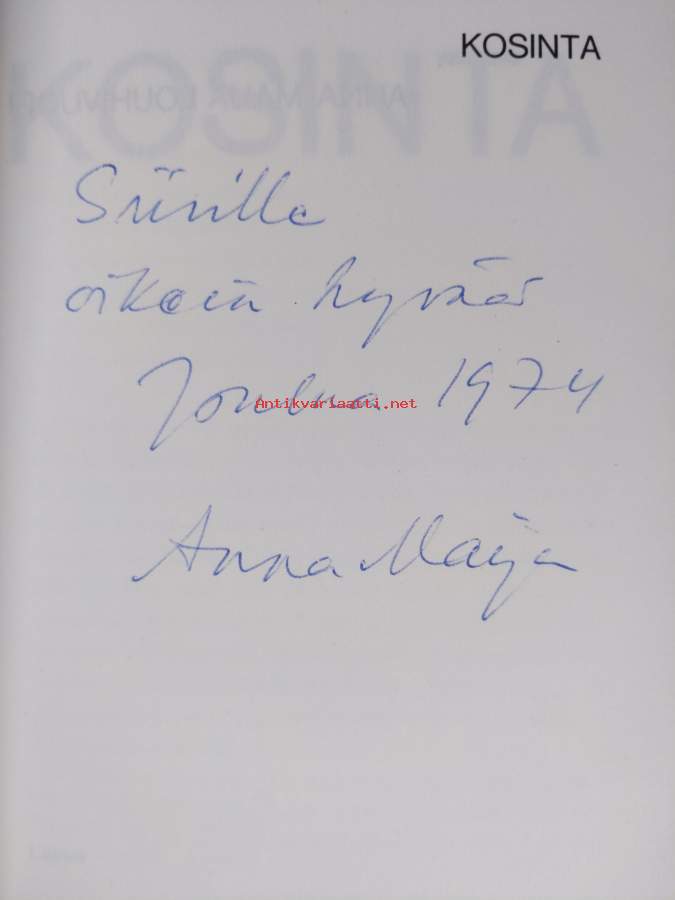 KOSINTA
Siirille
oikein hyvää
Joulua 1974
Antikvariaatti.net
Anna Maija